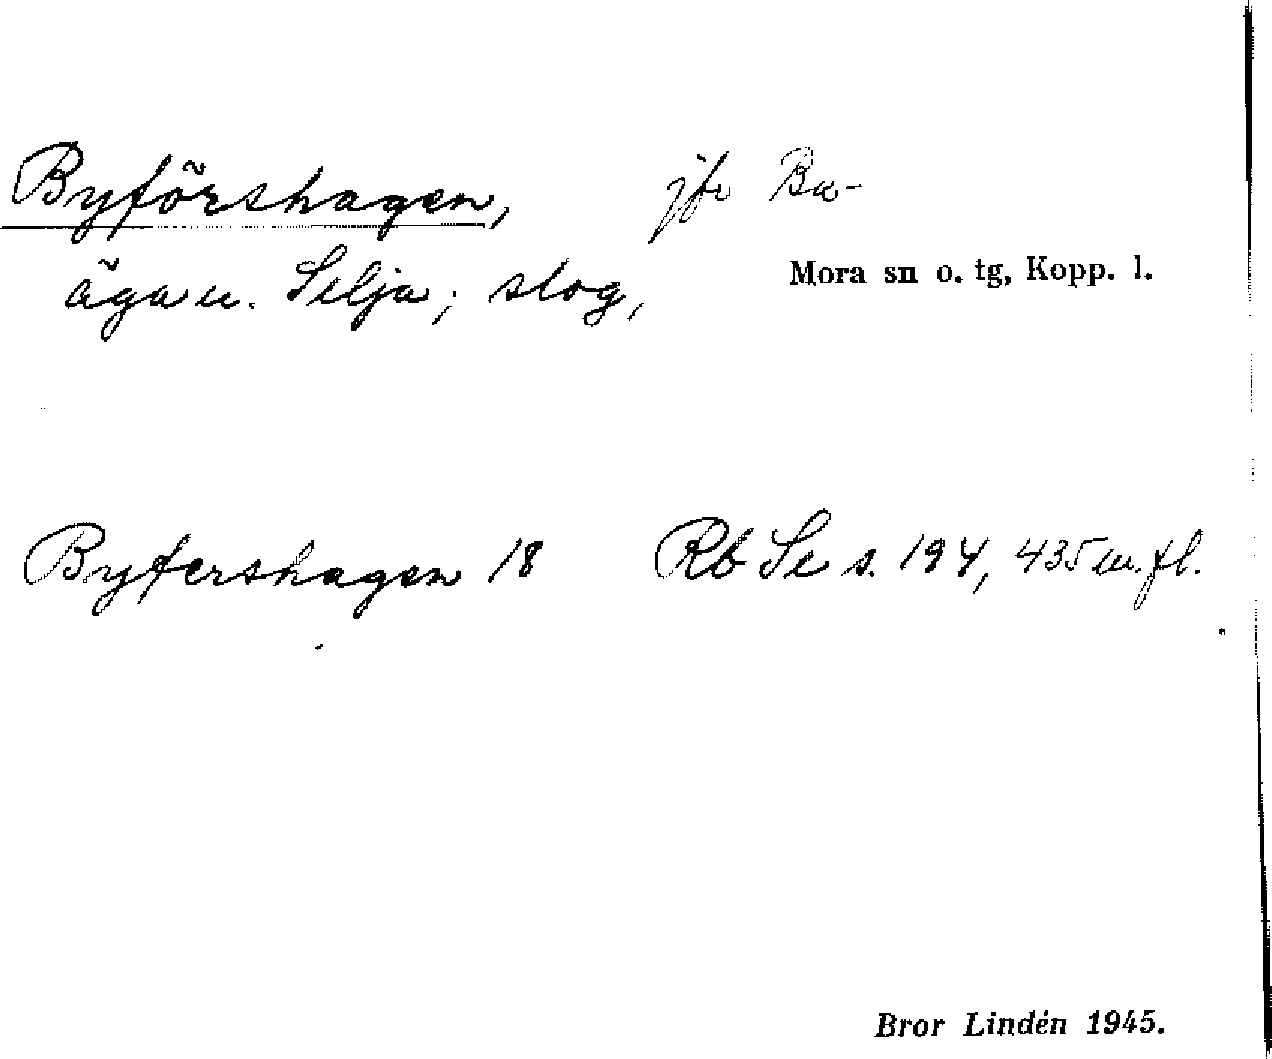 Byförshagen, jfr Bu-
äga u. Selja; slog, Mora sn o. tg, Kopp. l.
Byfershagen 18 Rb Se s. 194, 435 m. fl.
Bror Lindén 1945.